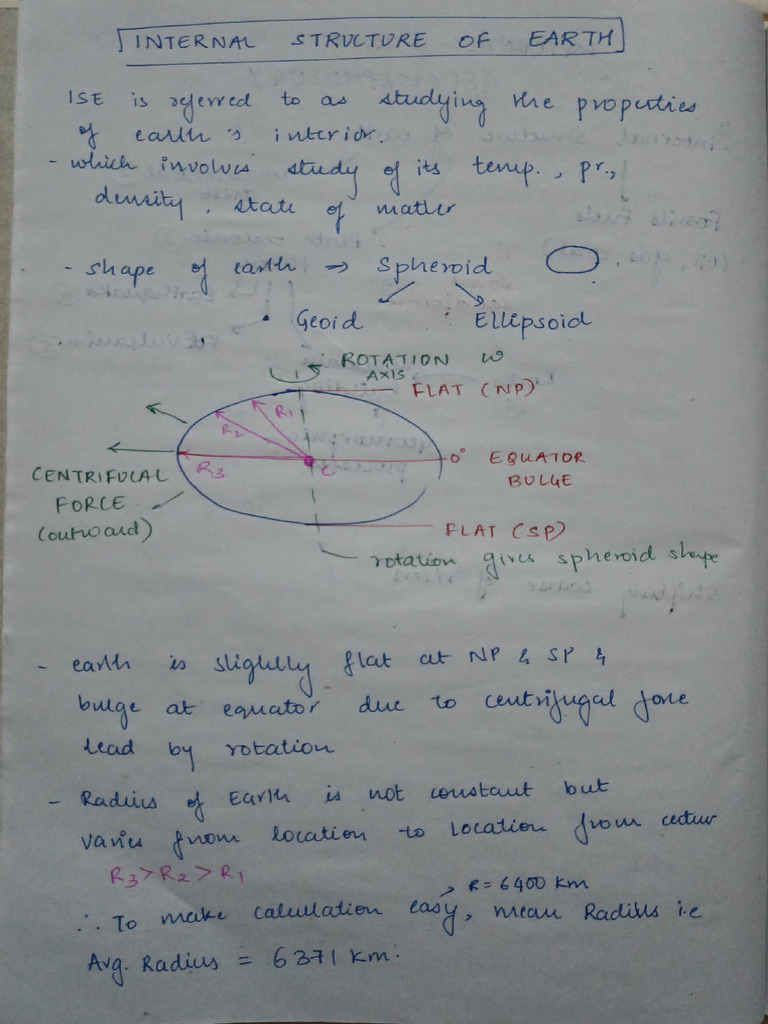 INTERNAL STRUCTURE OF EARTH
ISE is referred to as studying the properties
of earth's interior.
- which involves study of its temp., pr.,
density, state of matter
- shape of earth ⇒ Spheroid
• Geoid
Ellipsoid
ROTATION ω
AXIS
FLAT (NP)
R1
R2
R3
C
0° EQUATOR
BULGE
CENTRIFUCAL
FORCE
(outward)
FLAT (SP)
rotation gives spheroid shape
- earth is slightly flat at NP & SP &
bulge at equator due to centrifugal force
lead by rotation
- Radius of Earth is not constant but
varies from location to location from center
R3 > R2 > R1
R = 6400 km
∴ To make calculation easy, mean Radius i.e
Avg. Radius = 6371 km.